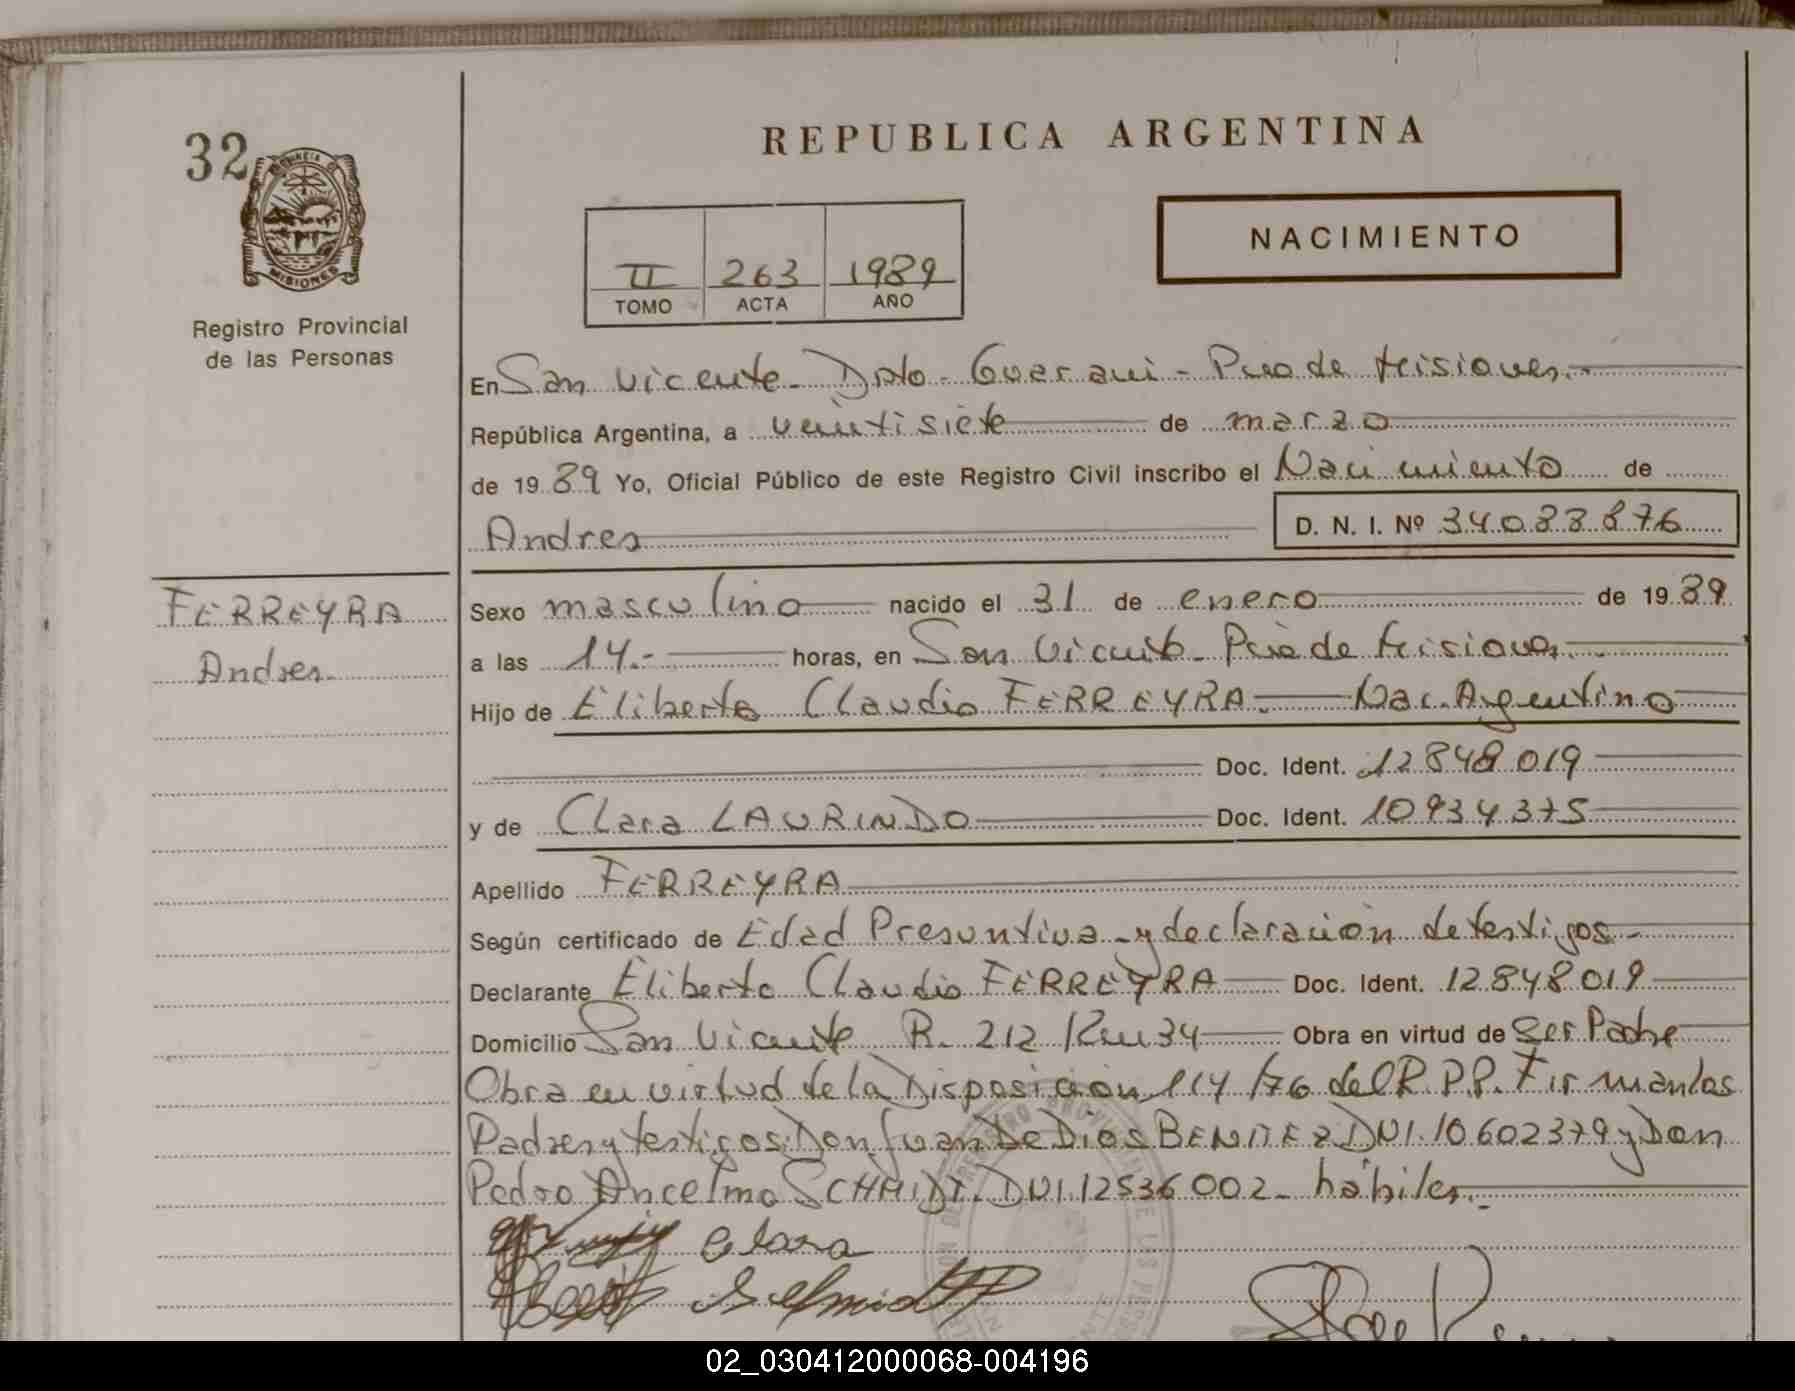 32
PROVINCIA DE
MISIONES
Registro Provincial
de las Personas
REPUBLICA ARGENTINA
NACIMIENTO
II 263 1989
TOMO ACTA AÑO
En San Vicente - Dpto - Guarani - Pcia de Misiones.-
República Argentina, a veintisiete de marzo
de 1989 Yo, Oficial Público de este Registro Civil inscribo el Nacimiento de
Andres D. N. I. Nº 34088876
FERREYRA
Andres
Sexo masculino nacido el 31 de enero de 1989
a las 14.- horas, en San Vicente - Pcia de Misiones.-
Hijo de Eliberto Claudio FERREYRA.- Nac. Argentino
Doc. Ident. 12848019
y de Clara LAURINDO Doc. Ident. 10934375
Apellido FERREYRA
Según certificado de Edad Presuntiva - y declaración de testigos -
Declarante Eliberto Claudio FERREYRA Doc. Ident. 12848019
Domicilio San Vicente R. 212 Km 34 Obra en virtud de Ser Padre
Obra en virtud de la Disposición 114/76 del R.P.P. Firman los
Padres y testigos: Don Juan De Dios BENITEZ DNI. 10602379 y Don
Pedro Ancelmo SCHMIDT. DNI. 12536002 - hábiles.-
clara
02_030412000068-004196